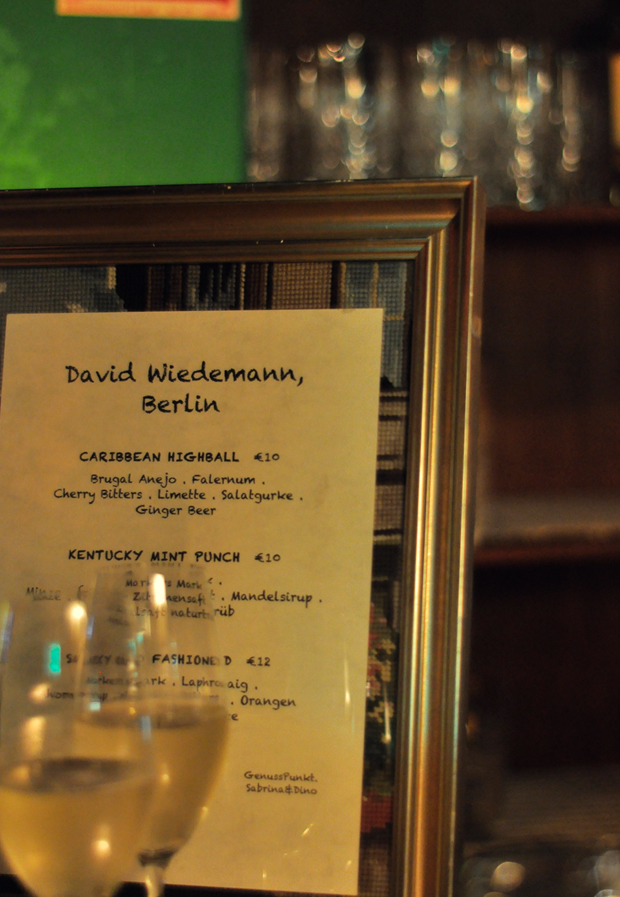 David Wiedemann,
Berlin
CARIBBEAN HIGHBALL €10
Brugal Anejo . Falernum .
Cherry Bitters . Limette . Salatgurke .
Ginger Beer
KENTUCKY MINT PUNCH €10
Mark .
Minze . Zitronensaft . Mandelsirup .
naturtrüb
FASHIONED €12
Laphroaig .
. Orangen
GenussPunkt.
Sabrina&Dino